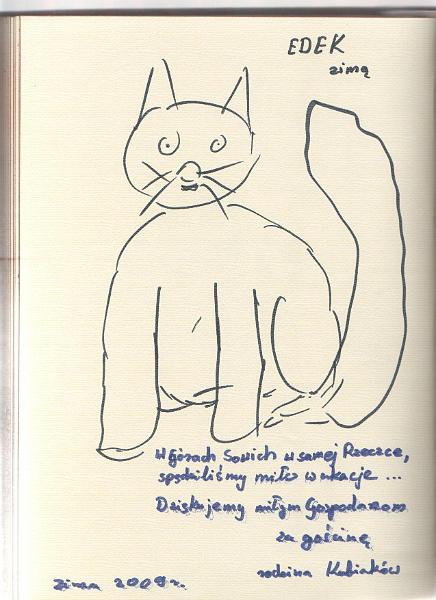 EDEK
zimą
W górach Sowich w samej Rzeczce,
spędziliśmy miło wakacje ...
Dziękujemy miłym Gospodarzom
za gościnę
rodzina Kubiaków
zima 2009 r.